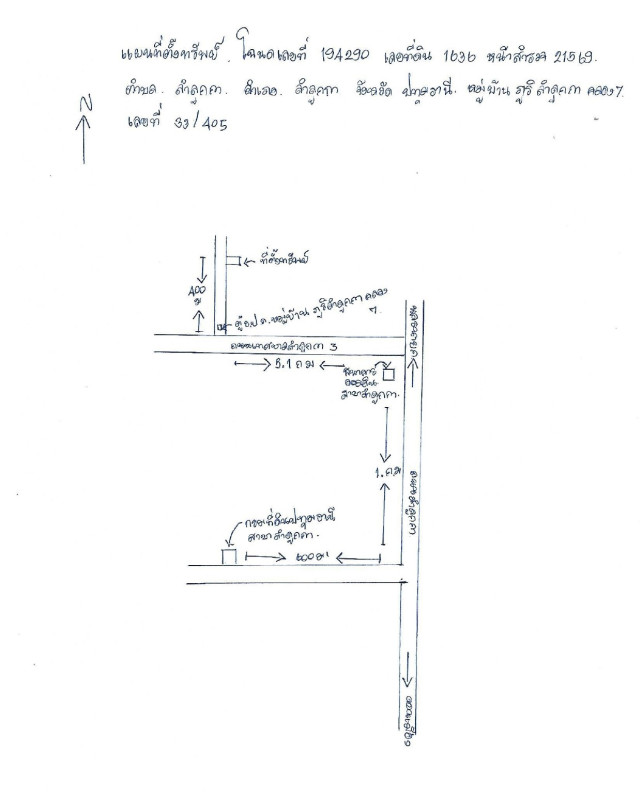 แผนที่ตั้งทรัพย์. โฉนดเลขที่ 194290 เลขที่ดิน 1636 หน้าสำรวจ 21569.
ตำบล. ลำลูกกา. อำเภอ. ลำลูกกา จังหวัด ปทุมธานี. หมู่บ้าน ภูริ ลำลูกกา คลอง 7.
เลขที่ 33/405
N
ที่ตั้งทรัพย์
400
ม
หมู่บ้าน ภูริลำลูกกา คลอง
7.
ถนนเทศบาลลำลูกกา 3
5.1 กม
ธนาคาร
ออมสิน
สาขาลำลูกกา.
1. กม
ถนนลำลูกกา
กรมที่ดินปทุมธานี
สาขาลำลูกกา.
600 ม.